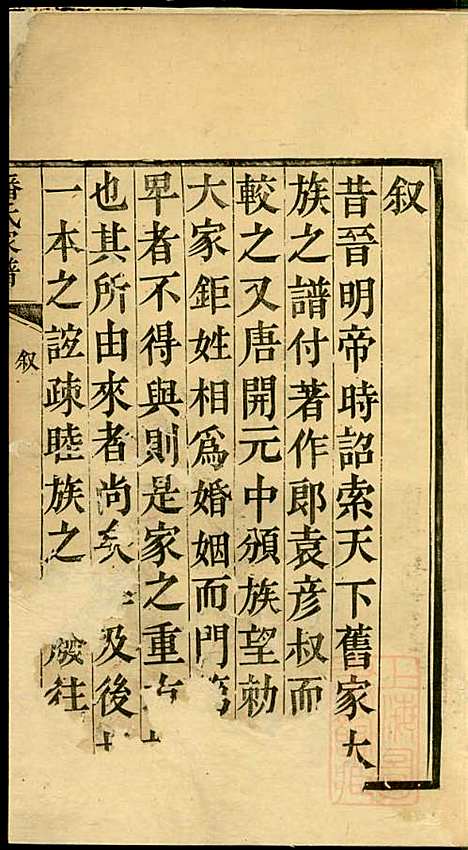 叙
昔晉明帝時詔索天下舊家大
族之譜付著作郎袁彦叔而
較之又唐開元中頒族望勑
大家鉅姓相爲婚姻而門
甲者不得與則是家之重
也其所由來者尚矣 及後
一本之誼疎睦族之 放往
氏家譜
叙